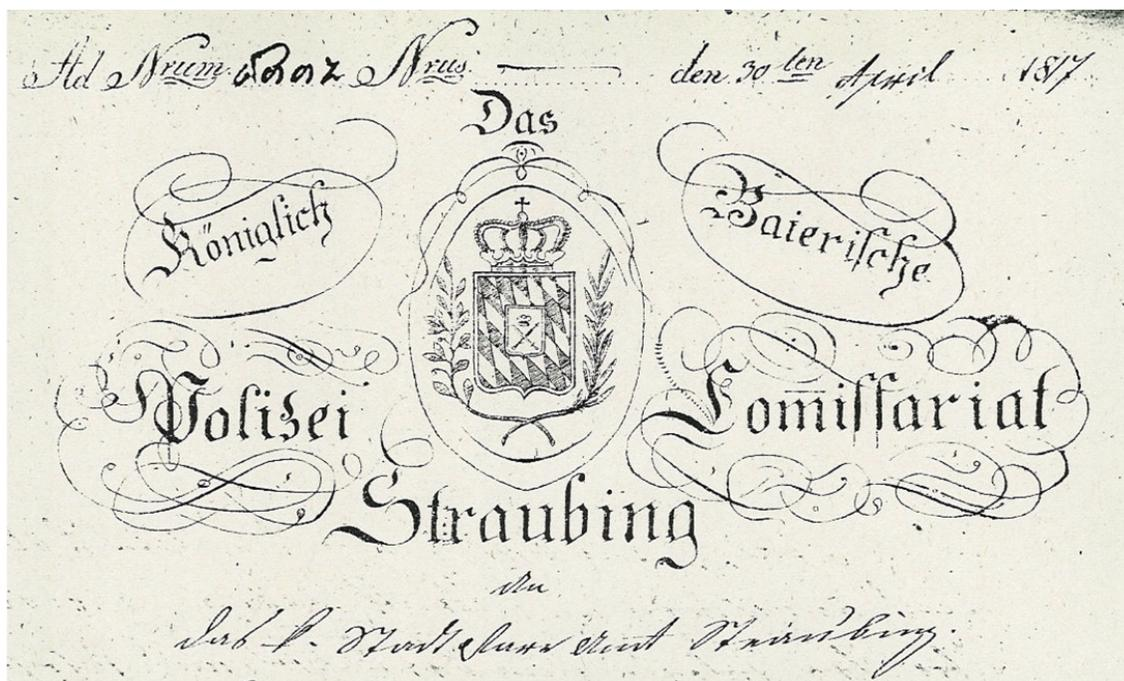 Ad Nrum Nrus den 30ten April 1817
Das
Königlich Baierische
Polizei Com̅issariat
Straubing
An
das k. Stadtpfarr Amt Straubing.